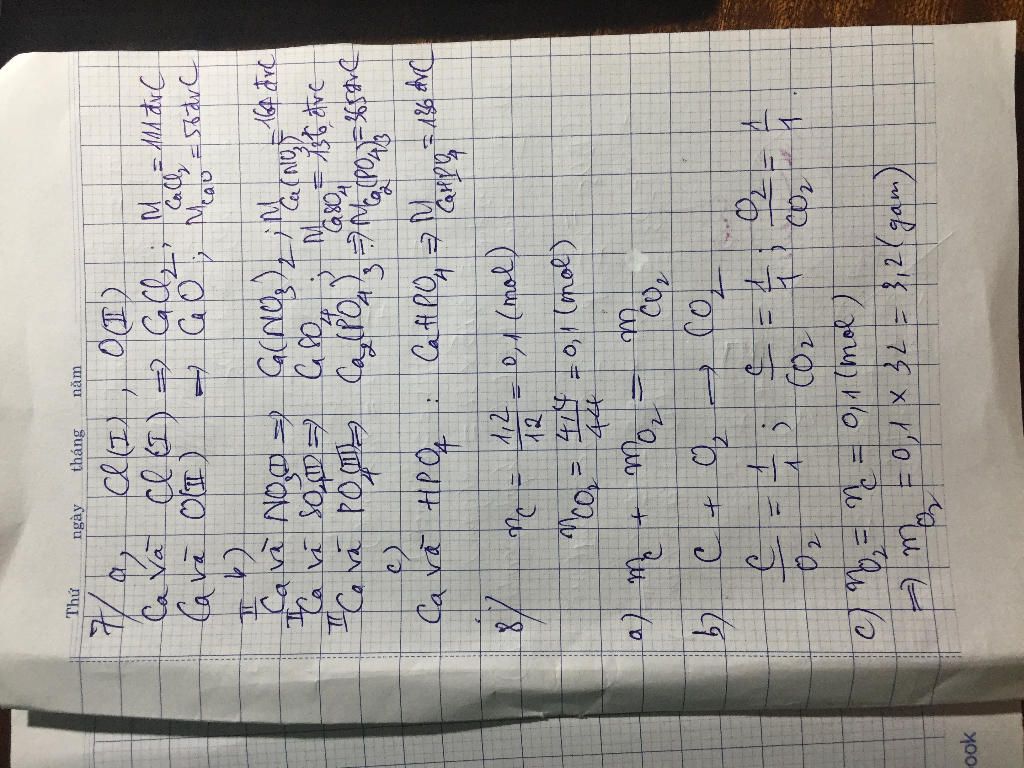 Thứ ngày tháng năm
7/ a, Cl(I), O(II)
Ca và Cl(I) => CaCl2; M CaCl2 = 111 đvC
Ca và O(II) => CaO; M CaO = 56 đvC
b)
II Ca và NO3(I) => Ca(NO3)2; M Ca(NO3)2 = 164 đvC
II Ca và SO4(II) => CaSO4; M CaSO4 = 136 đvC
II Ca và PO4(III) => Ca2(PO4)3 => M Ca2(PO4)3 = 365 đvC
c)
Ca và HPO4 : CaHPO4 => M CaHPO4 = 136 đvC
8/ nC = 1,2/12 = 0,1 (mol)
nCO2 = 4,4/44 = 0,1 (mol)
a) mC + mO2 = mCO2
b) C + O2 → CO2
C/O2 = 1/1; C/CO2 = 1/1; O2/CO2 = 1/1
c) nO2 = nC = 0,1 (mol)
=> mO2 = 0,1 x 32 = 3,2 (gam)
ook